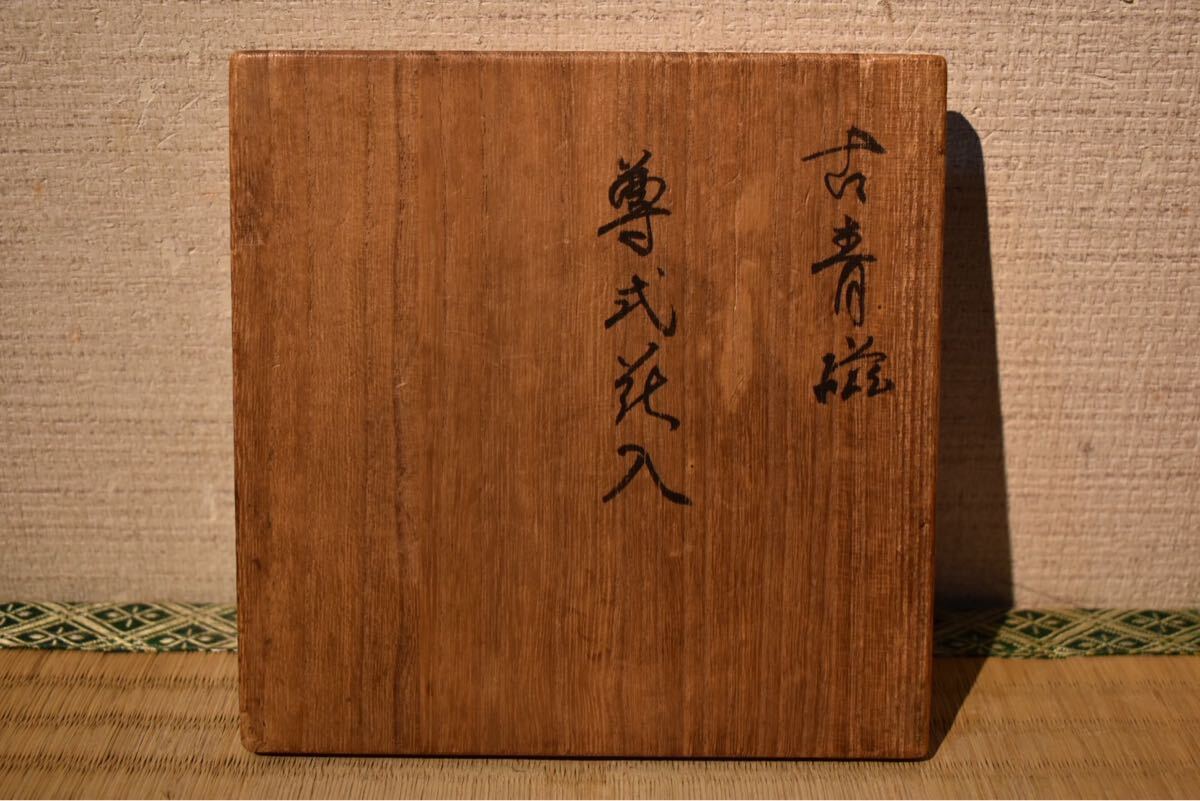 古青磁
尊式花入